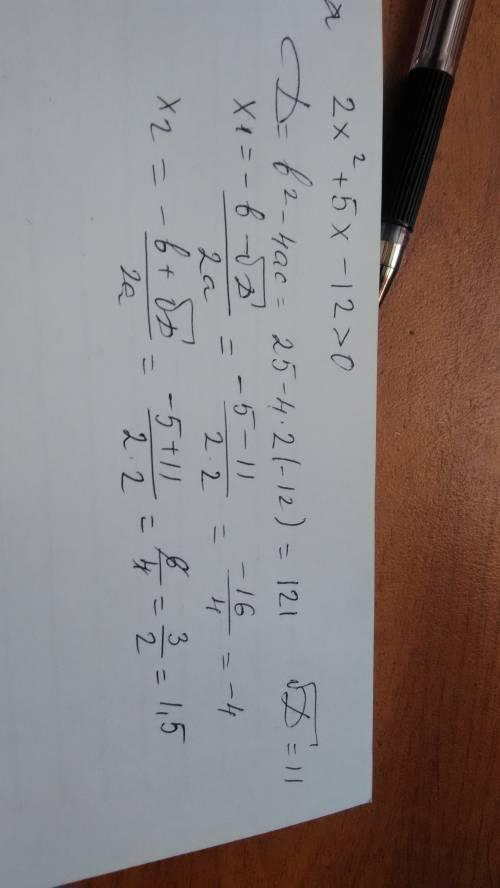 2x² + 5x - 12 > 0
D = b² - 4ac = 25 - 4·2(-12) = 121 √D = 11
x1 = (-b - √D)/2a = (-5 - 11)/(2·2) = (-16)/4 = -4
x2 = (-b + √D)/2a = (-5 + 11)/(2·2) = 6/4 = 3/2 = 1,5